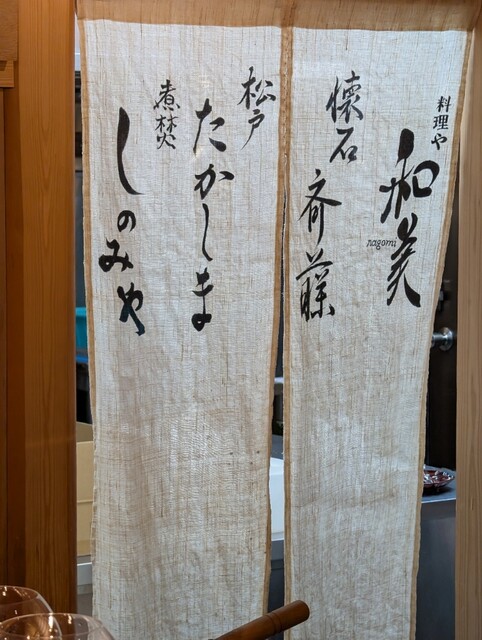 料理や
和美
nagomi
懐石
斉藤
松戸
たかしま
煮焚
しのみや